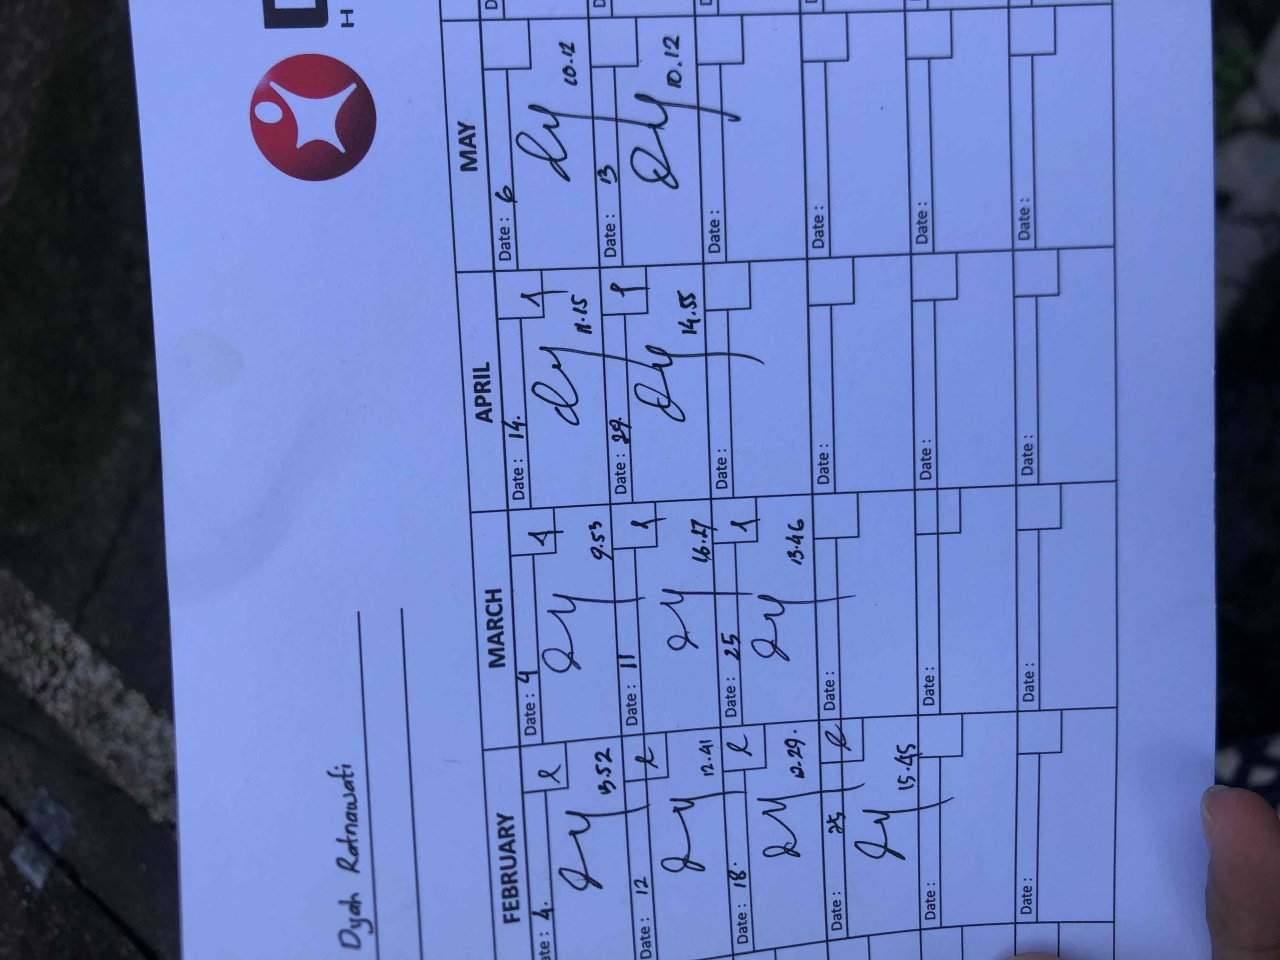 D
H
Dyah Ratnawati
FEBRUARY MARCH APRIL MAY
ate: 4. Date: 4 Date: 14. Date: 6
13.52 9.53 11.15 10.12
Date: 12 Date: 11 Date: 29. Date: 13
12.41 16.27 14.55 10.12
Date: 18. Date: 25 Date: Date:
13.46
Date: 25 Date: Date: Date:
15.45
Date: Date: Date: Date:
Date: Date: Date: Date: